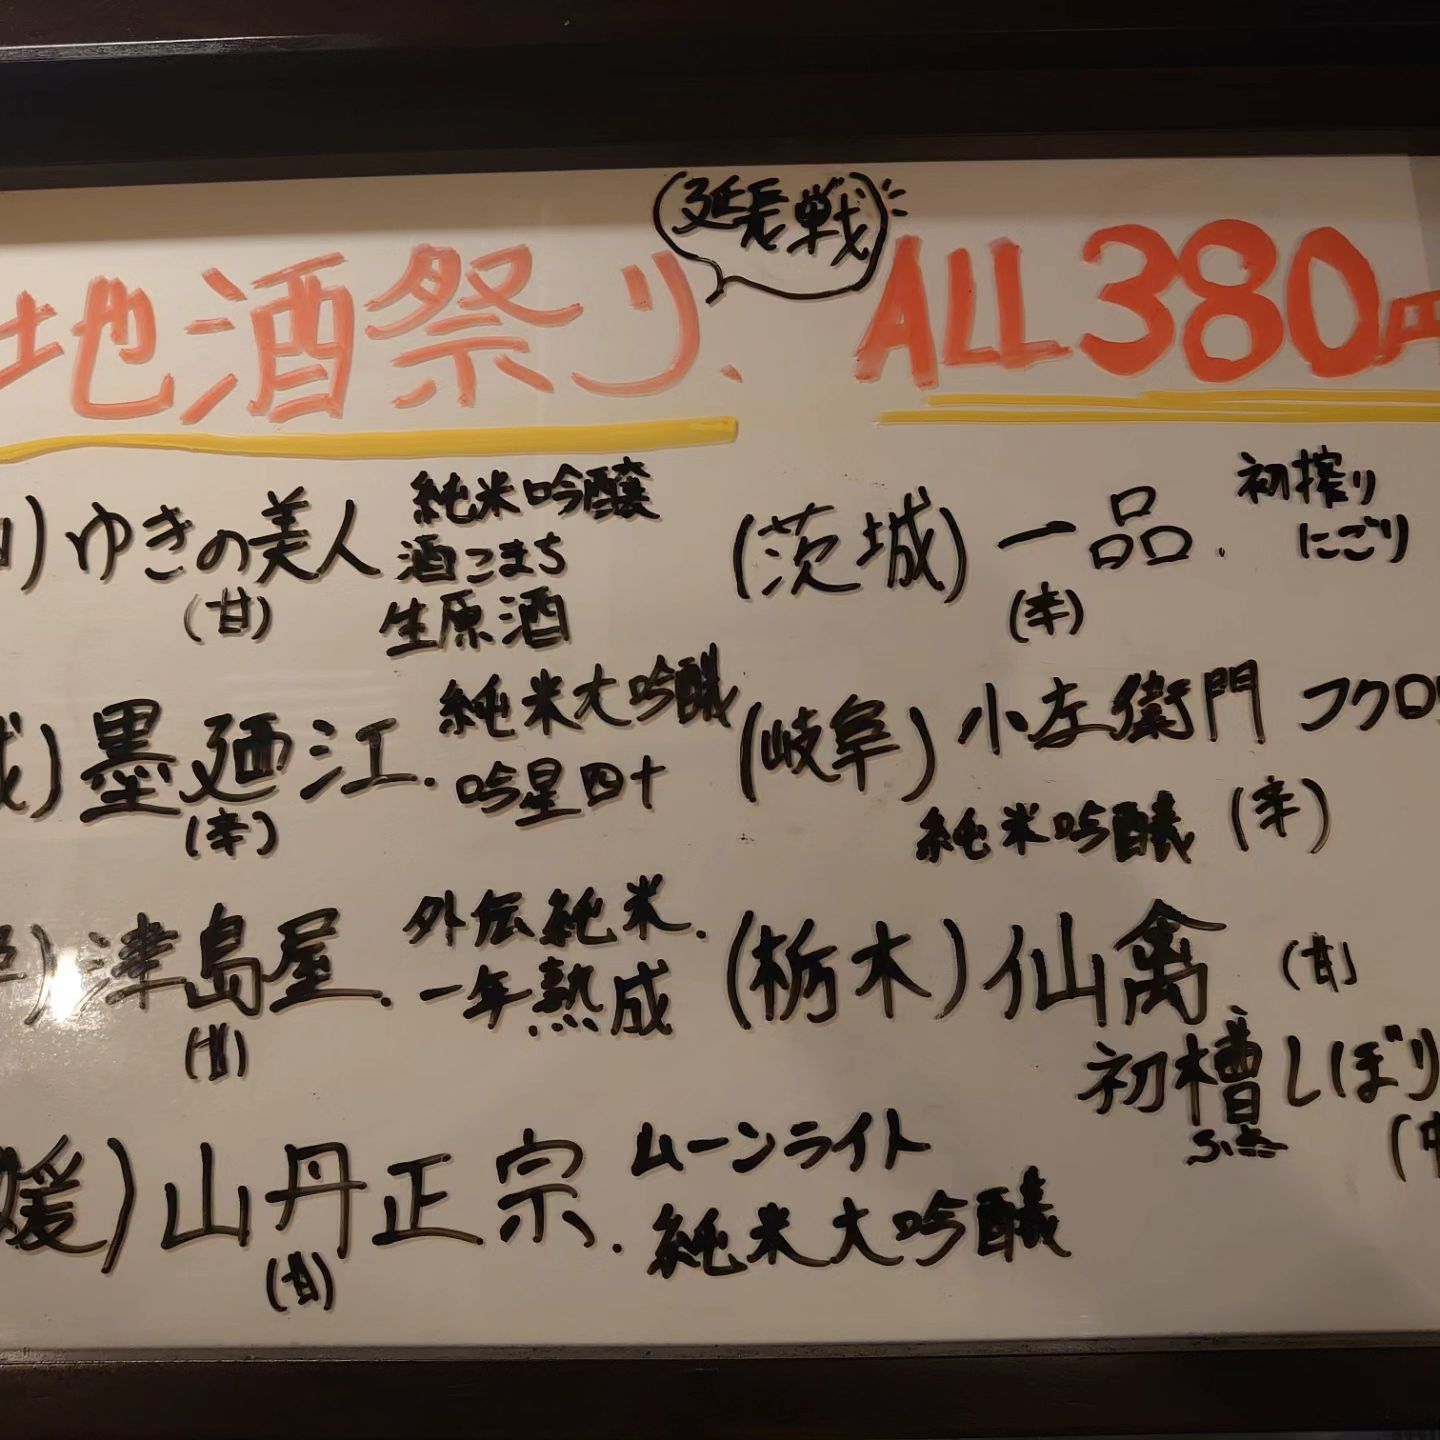 延長戦
地酒祭り. ALL 380円
ゆきの美人 純米吟醸
酒こまち
(甘) 生原酒
墨廼江. 純米大吟醸
(辛) 吟星四十
津島屋. 外伝純米.
(甘) 一年熟成
媛) 山丹正宗. ムーンライト
(甘) 純米大吟醸
(茨城) 一品. 初搾り
(辛) にごり
(岐阜) 小左衛門 フクロ
純米吟醸 (辛)
(栃木) 仙禽、(甘)
初槽しぼり
ふね